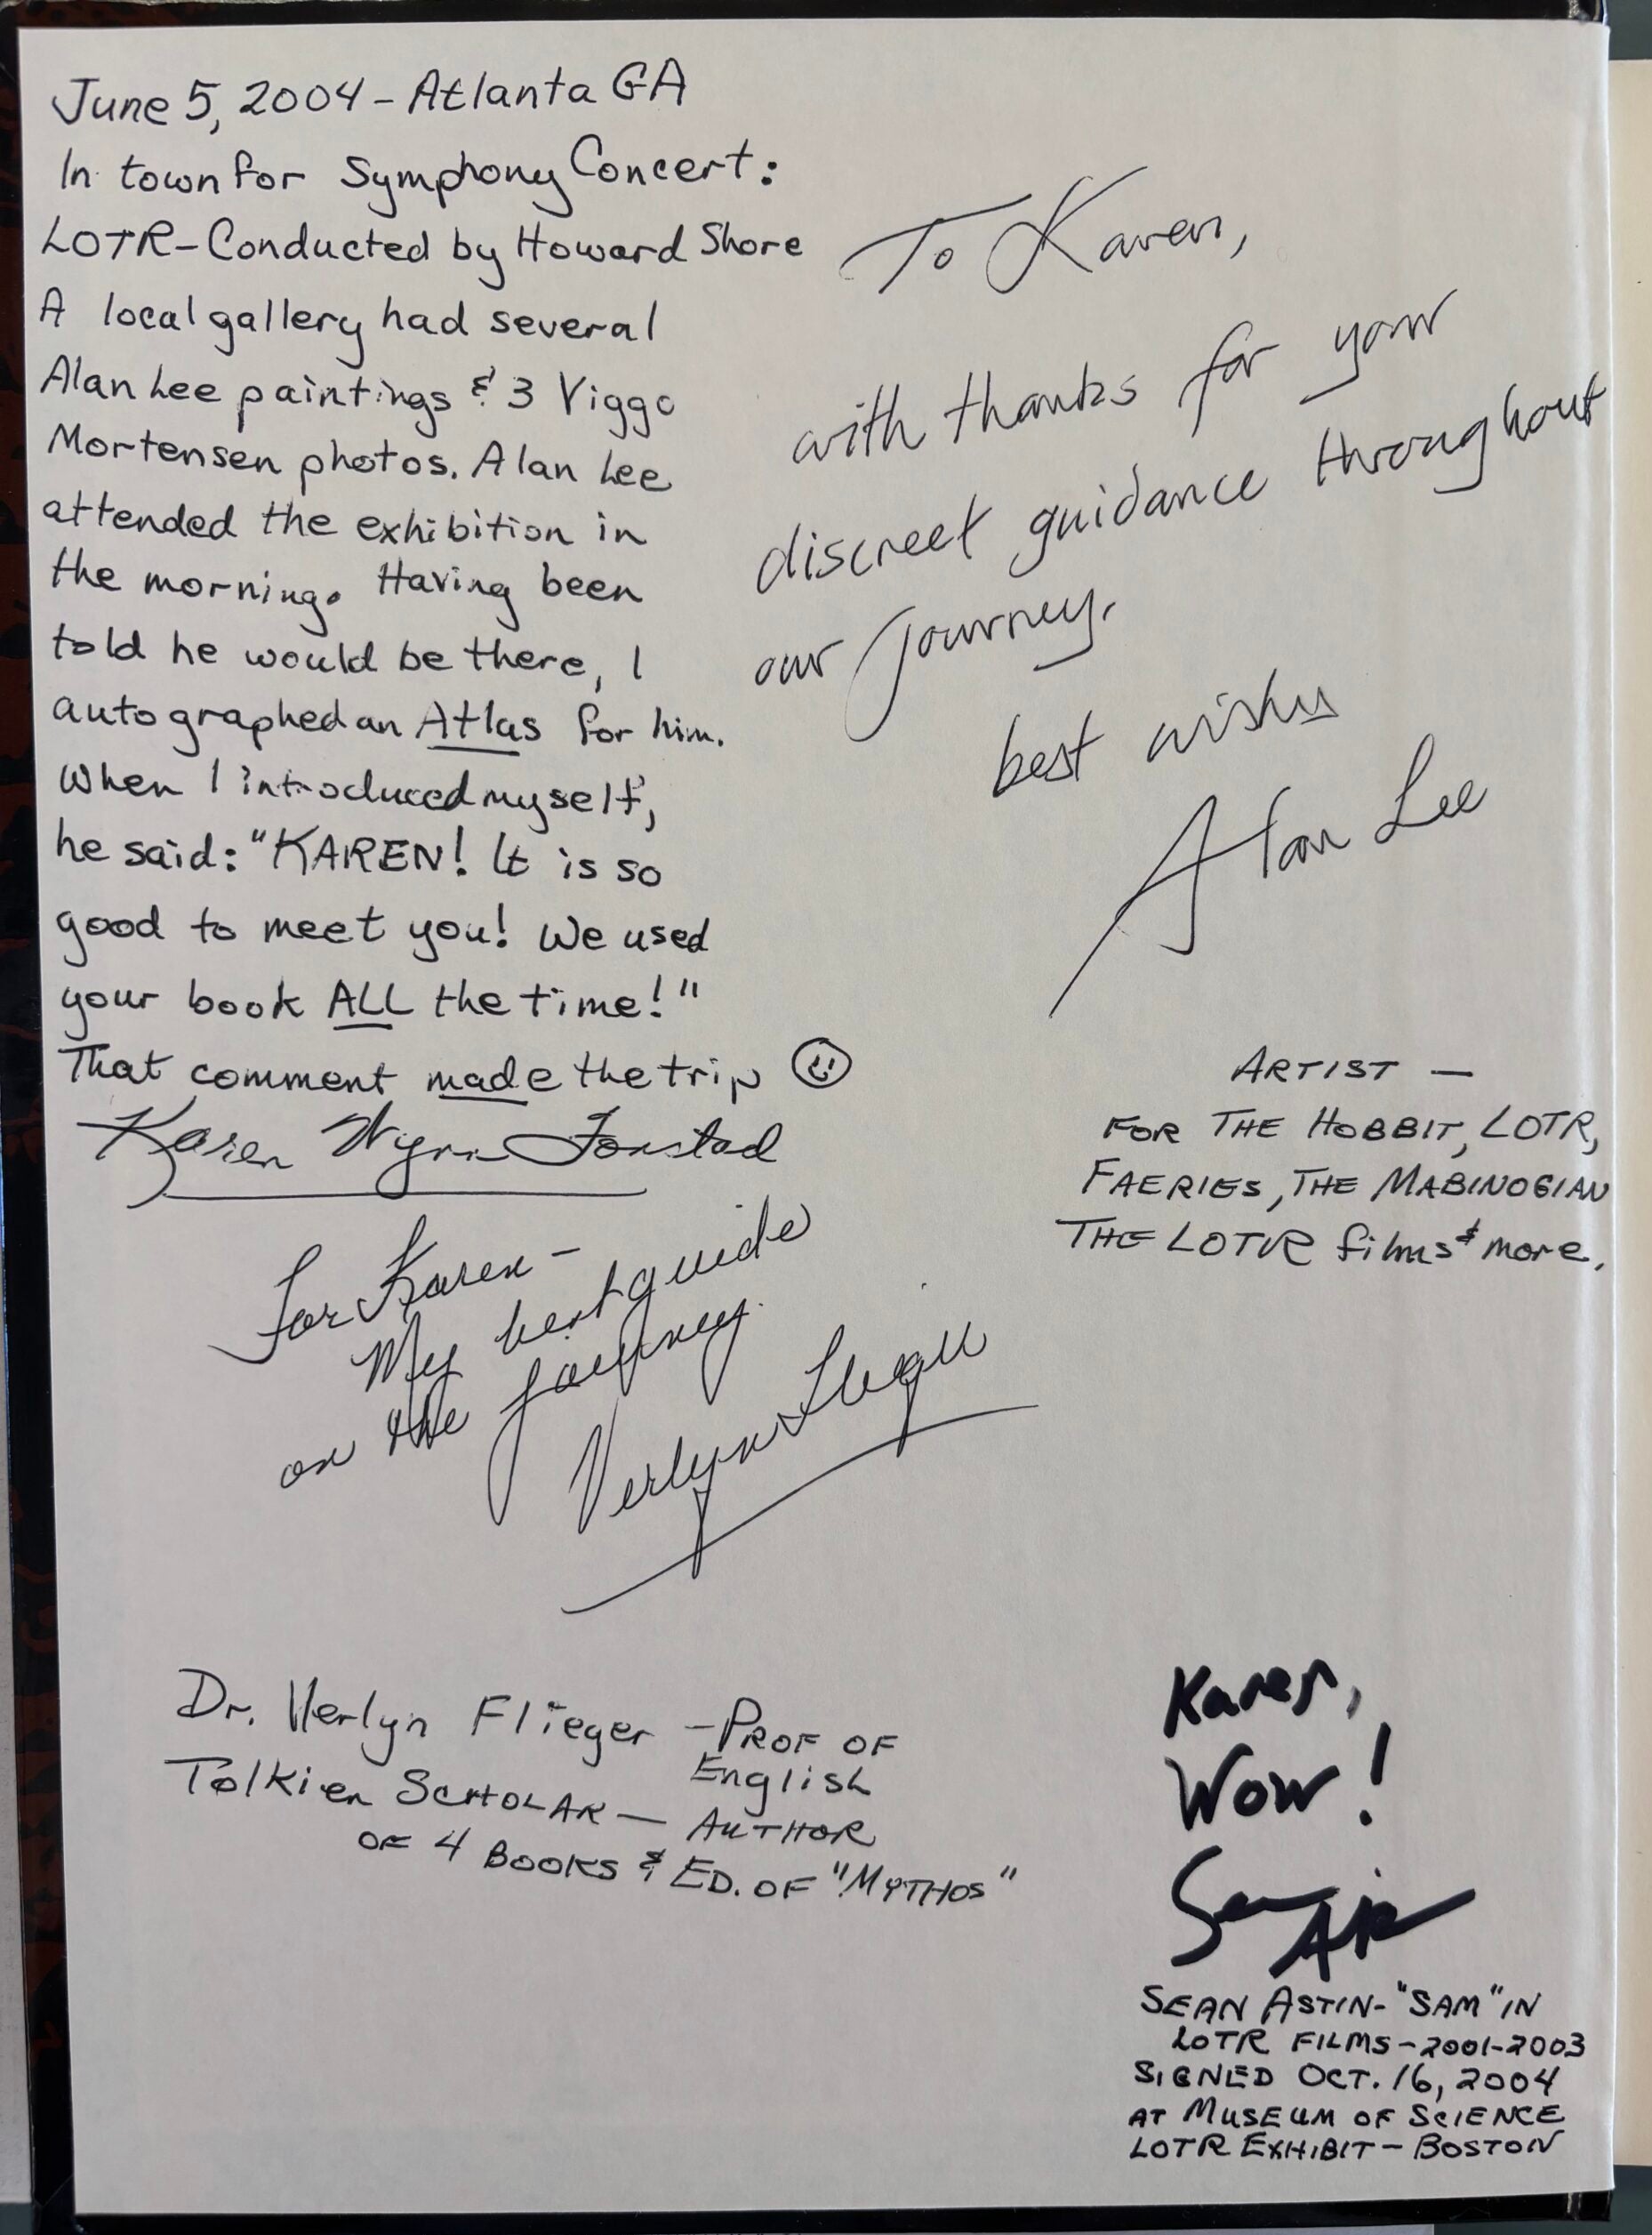 June 5, 2004 - Atlanta GA
In town for Symphony Concert:
LOTR - Conducted by Howard Shore
A local gallery had several
Alan Lee paintings & 3 Viggo
Mortensen photos. Alan Lee
attended the exhibition in
the morning. Having been
told he would be there, I
autographed an Atlas for him.
When I introduced myself,
he said: "KAREN! It is so
good to meet you! We used
your book ALL the time!"
That comment made the trip
Karen Wynn Fonstad
To Karen,
with thanks for your
discreet guidance throughout
our journey.
best wishes
Alan Lee
ARTIST —
FOR THE HOBBIT, LOTR,
FAERIES, THE MABINOGIAN
THE LOTR films & more.
For Karen -
My best guide
on the journey.
Verlyn Flieger
Dr. Verlyn Flieger - PROF OF
English
Tolkien SCHOLAR — AUTHOR
OF 4 BOOKS & ED. OF "MYTHOS"
Karen,
Wow!
Sean Astin
SEAN ASTIN - "SAM" IN
LOTR FILMS - 2001-2003
SIGNED OCT. 16, 2004
AT MUSEUM OF SCIENCE
LOTR EXHIBIT - BOSTON